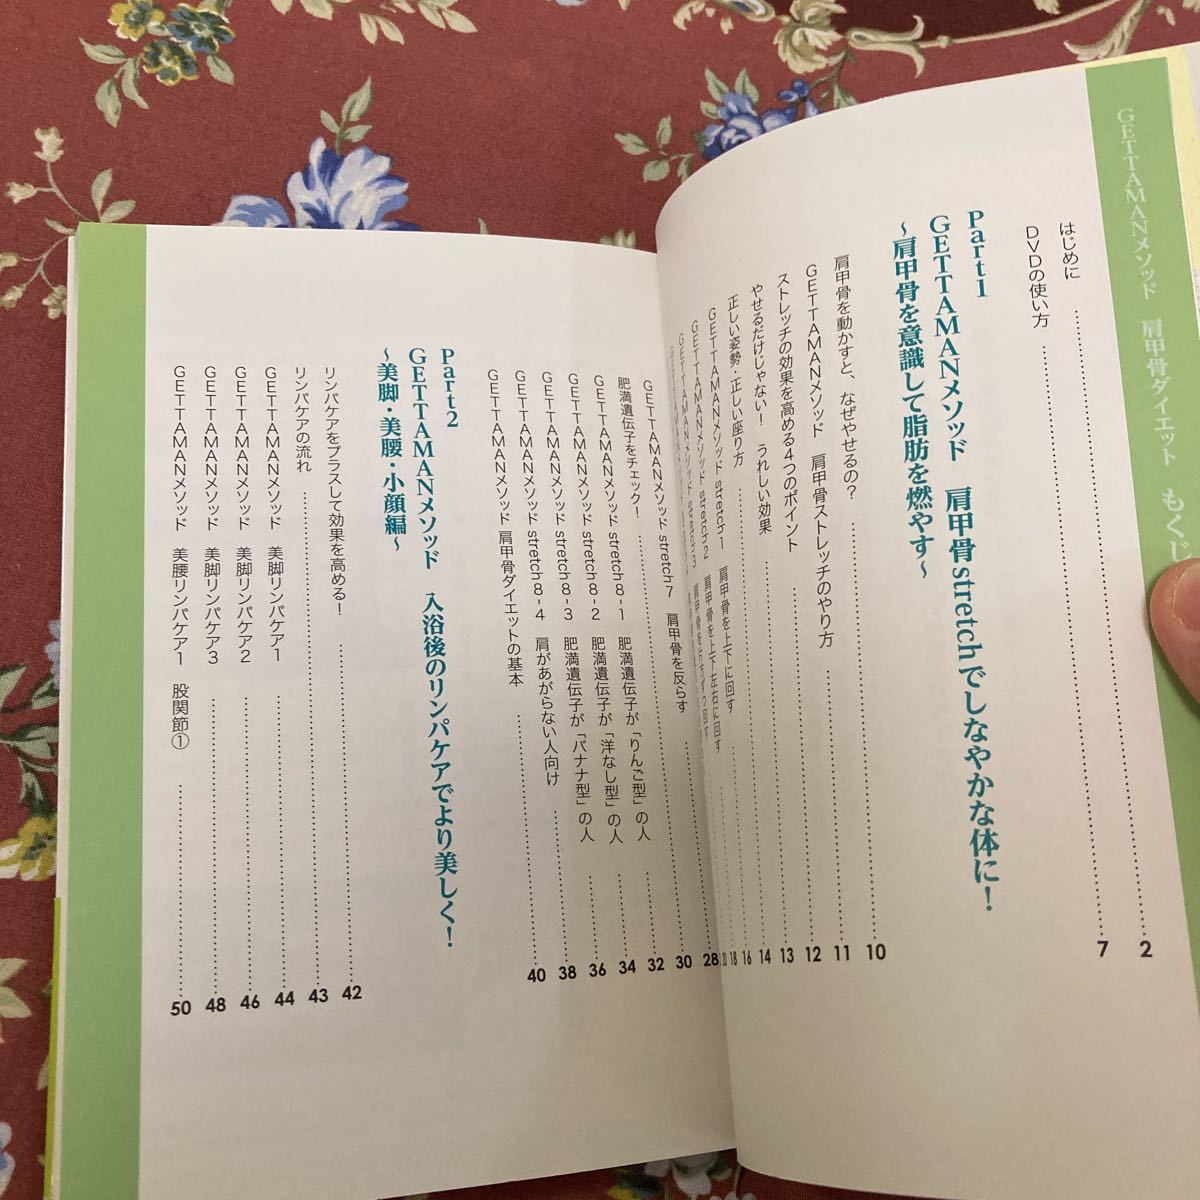 GETTAMANメソッド 肩甲骨ダイエット もくじ
はじめに……2
DVDの使い方……7
Part1
GETTAMANメソッド 肩甲骨stretchでしなやかな体に!
~肩甲骨を意識して脂肪を燃やす~
肩甲骨を動かすと、なぜやせるの?……10
GETTAMANメソッド 肩甲骨ストレッチのやり方……11
ストレッチの効果を高める4つのポイント……12
やせるだけじゃない! うれしい効果……13
正しい姿勢・正しい座り方……14
GETTAMANメソッド stretch1 肩甲骨を上下に回す……16
GETTAMANメソッド stretch2 肩甲骨を上下左右に回す……18
GETTAMANメソッド stretch3
28
30
GETTAMANメソッド stretch7 肩甲骨を反らす
肥満遺伝子をチェック!……32
GETTAMANメソッド stretch8-1 肥満遺伝子が「りんご型」の人……34
GETTAMANメソッド stretch8-2 肥満遺伝子が「洋なし型」の人……36
GETTAMANメソッド stretch8-3 肥満遺伝子が「バナナ型」の人……38
GETTAMANメソッド stretch8-4 肩があがらない人向け……40
GETTAMANメソッド 肩甲骨ダイエットの基本
Part2
GETTAMANメソッド 入浴後のリンパケアでより美しく!
~美脚・美腰・小顔編~
リンパケアをプラスして効果を高める!……42
リンパケアの流れ……43
GETTAMANメソッド 美脚リンパケア1……44
GETTAMANメソッド 美脚リンパケア2……46
GETTAMANメソッド 美脚リンパケア3……48
GETTAMANメソッド 美腰リンパケア1 股関節①……50